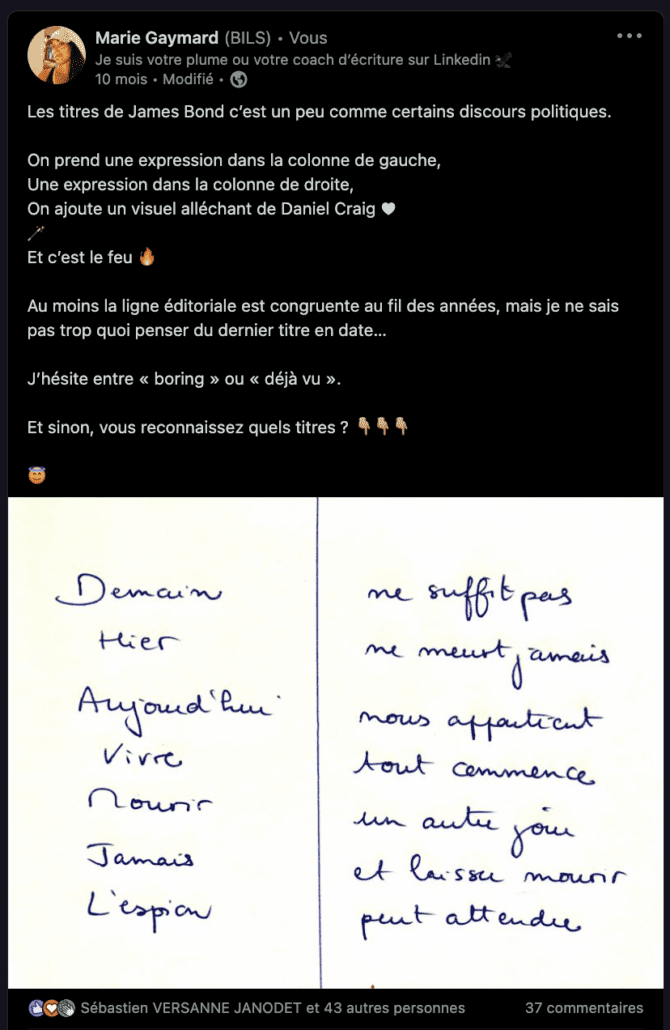 Marie Gaymard (BILS) • Vous
Je suis votre plume ou votre coach d’écriture sur Linkedin
10 mois • Modifié •
Les titres de James Bond c’est un peu comme certains discours politiques.
On prend une expression dans la colonne de gauche,
Une expression dans la colonne de droite,
On ajoute un visuel alléchant de Daniel Craig 🤍
🪄
Et c’est le feu 🔥
Au moins la ligne éditoriale est congruente au fil des années, mais je ne sais
pas trop quoi penser du dernier titre en date...
J’hésite entre « boring » ou « déjà vu ».
Et sinon, vous reconnaissez quels titres ? 👇🏼👇🏼👇🏼
😇
Demain
Hier
Aujourd'hui
Vivre
Mourir
Jamais
L'espion
ne suffit pas
ne meurt jamais
nous appartient
tout commence
un autre jour
et laisser mourir
peut attendre
Sébastien VERSANNE JANODET et 43 autres personnes
37 commentaires